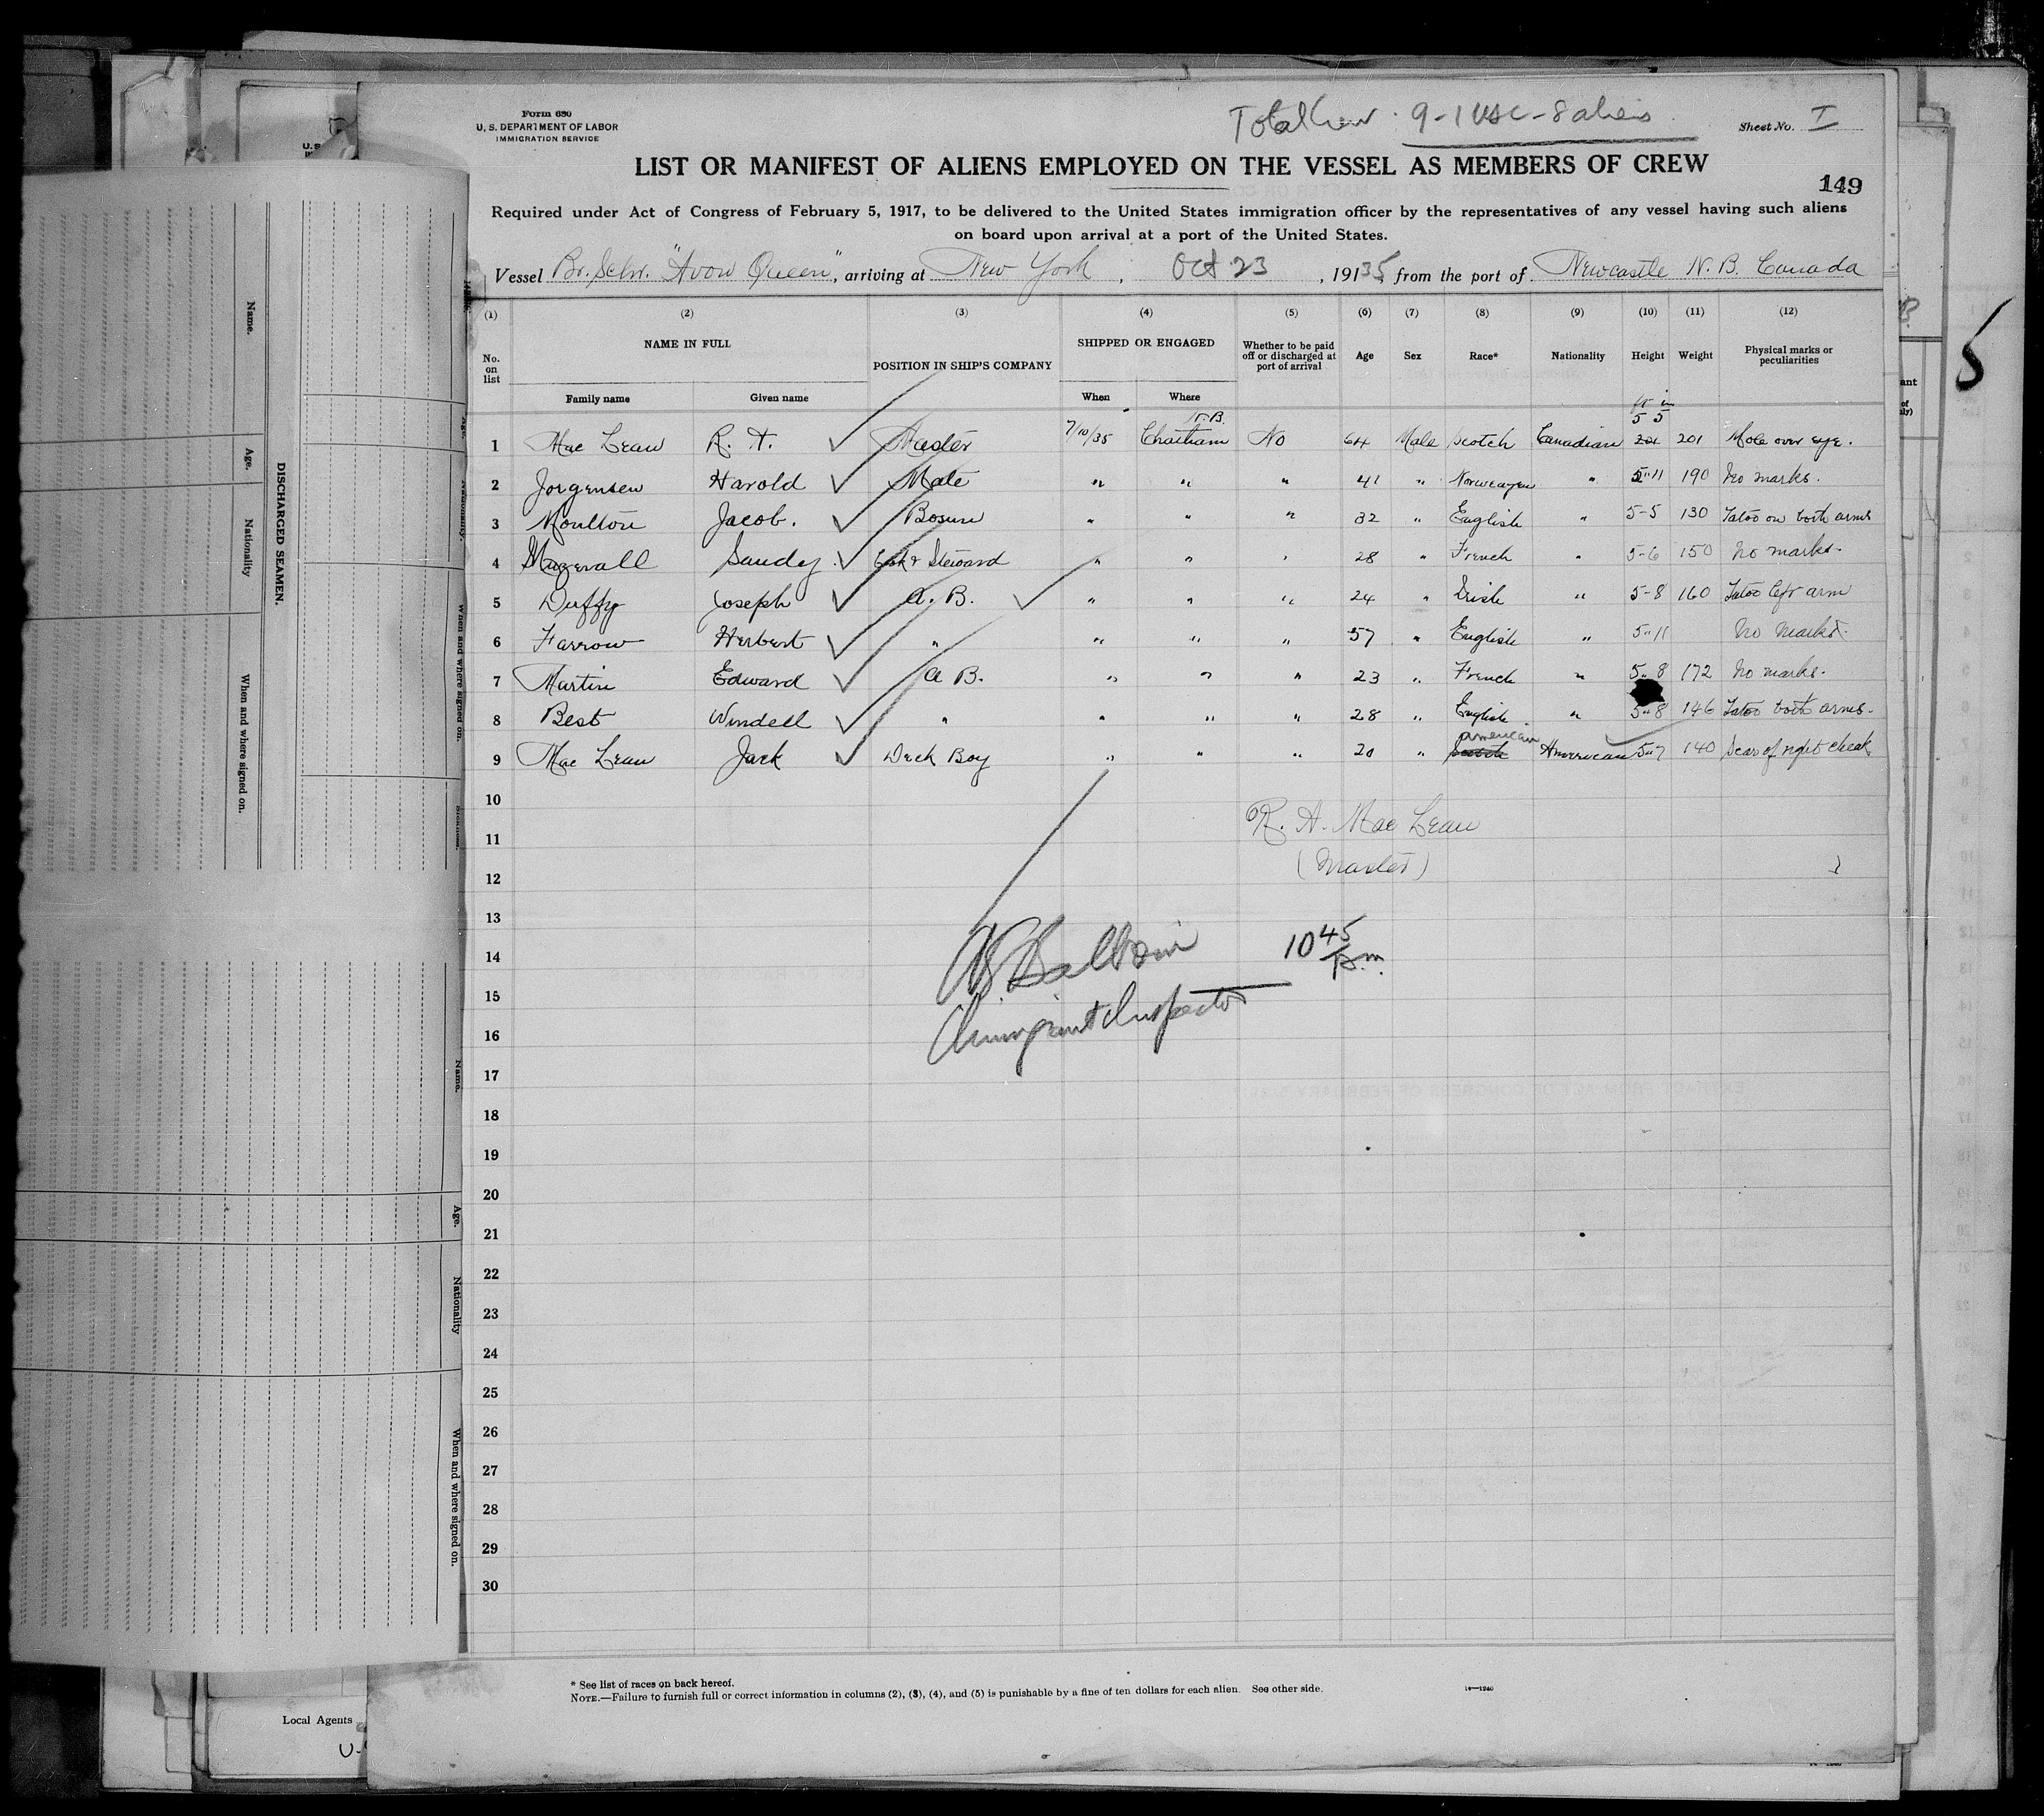 Form 680
U. S. DEPARTMENT OF LABOR
IMMIGRATION SERVICE
Total Crew. 9-1 USC-8 aliens
Sheet No. I
LIST OR MANIFEST OF ALIENS EMPLOYED ON THE VESSEL AS MEMBERS OF CREW
149
Required under Act of Congress of February 5, 1917, to be delivered to the United States immigration officer by the representatives of any vessel having such aliens
on board upon arrival at a port of the United States.
Vessel Br. Schr. "Avon Queen", arriving at New York, Oct 23, 19135, from the port of Newcastle N. B. Canada
(1) (2) (3) (4) (5) (6) (7) (8) (9) (10) (11) (12)
No. on list NAME IN FULL POSITION IN SHIP'S COMPANY SHIPPED OR ENGAGED Whether to be paid off or discharged at port of arrival Age Sex Race* Nationality Height Weight Physical marks or peculiarities
Family name Given name When Where
ft in
1 Mac Lean R. A. Master 7/10/35 Chatham N.B. No 64 Male Scotch Canadian 5 5 201 Mole over eye.
2 Jorgensen Harold Mate " " " 41 " Norweagen " 5"11 190 No marks.
3 Moulton Jacob. Bosun " " " 32 " English " 5-5 130 Tatoo on both arms
4 Sandy Cook & Steward " " " 28 " French " 5-6 150 No marks.
5 Duffy Joseph A. B. " " " 24 " Irish " 5-8 160 Tatoo left arm
6 Farrow Herbert " " " " 57 " English " 5"11 No marks.
7 Martin Edward A B. " " " 23 " French " 5"8 172 No marks.
8 Best Windell " " " " 28 " English " 5"8 146 Tatoo both arms.
9 Mac Lean Jack Deck Boy " " " 20 " Scotch American American 5"7 140 Scar of right cheek
10
11
12
13
14
15
16
17
18
19
20
21
22
23
24
25
26
27
28
29
30
R. A. Mac Lean
(Master)
10 45 p.m.
Immigrant Inspector
* See list of races on back hereof.
NOTE.—Failure to furnish full or correct information in columns (2), (3), (4), and (5) is punishable by a fine of ten dollars for each alien. See other side.
14—1240
DISCHARGED SEAMEN.
Name.
Age.
Nationality
When and where signed on.
Name.
Age.
Nationality
When and where signed on.
Local Agents
5